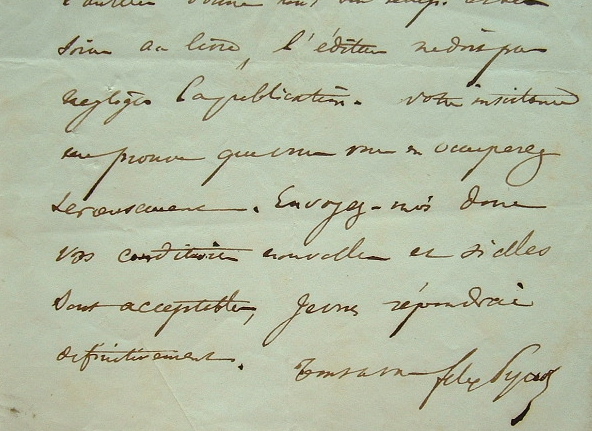 donne tout son temps et ses
soins au livre, l'éditeur ne doit pas
negliger la publication. Votre insistance
me prouve que vous vous en occuperez
serieusement. Envoyez-moi donc
vos conditions nouvelles et si elles
sont acceptables, je vous répondrai
definitivement.
Tout à vous felix Pyat